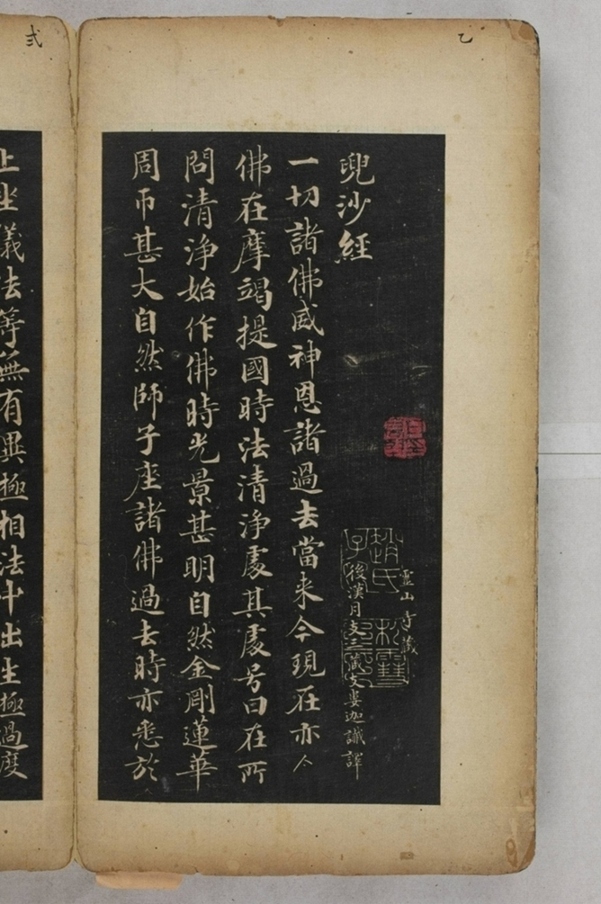 乙
靈山寺藏
兜沙經
後漢月支三藏支婁迦讖譯
一切諸佛威神恩諸過去當来今現在亦
佛在摩竭提國時法清淨處其處号曰在所
問清淨始作佛時光景甚明自然金剛蓮華
周帀甚大自然師子座諸佛過去時亦悉於
弍
上坐儀法等無有異極相法中出生極過度